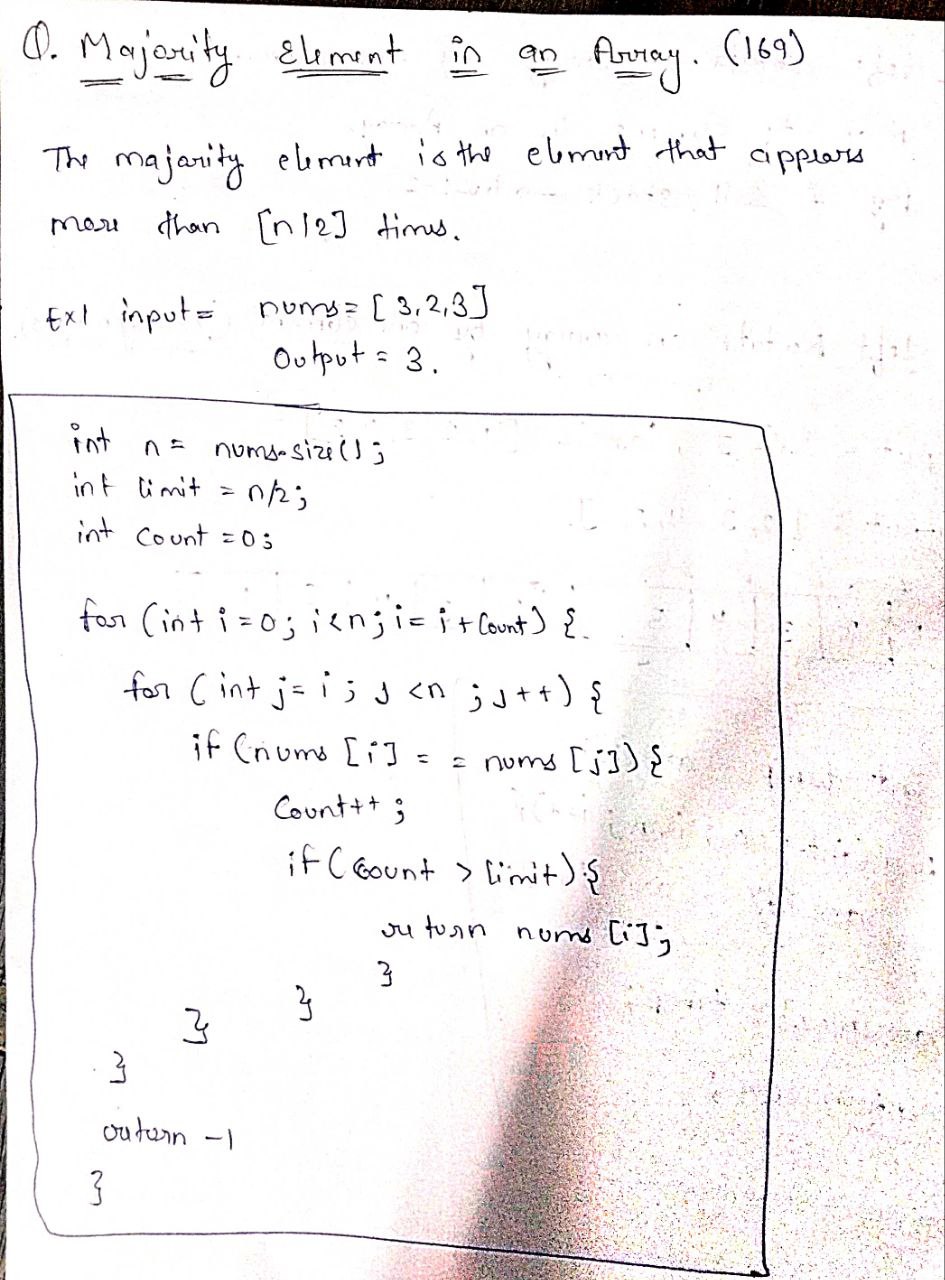 Q. Majority Element in an Array. (169)
The majarity element is the element that appears
more than [n/2] times.
Ex1 input = nums = [3,2,3]
Output = 3.
int n = nums.size();
int limit = n/2;
int count = 0;
for (int i = 0; i<n; i = i + Count) {
for (int j = i; j <n ; j++) {
if (nums [i] = = nums [j]) {
Count++;
if (count > limit) {
return nums [i];
}
}
}
}
return -1
}